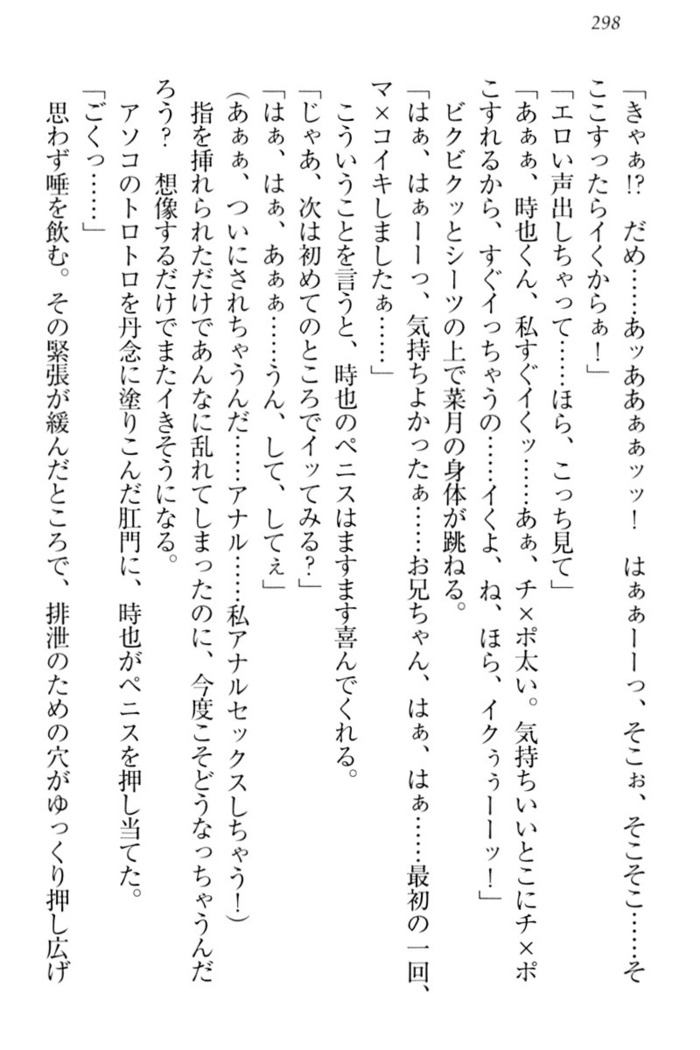 298
「きゃぁ!?　だめ……あッああぁぁッッ！　はぁぁーーっ、そこぉ、そこそこ……そ
ここすったらイくからぁ！」
「エロい声出しちゃって……ほら、こっち見て」
「あぁぁ、時也くん、私すぐイくッ……あぁ、チ×ポ太い。気持ちいいとこにチ×ポ
こすれるから、すぐイっちゃうの……イくよ、ね、ほら、イクぅぅーーッ！」
　ビクビクッとシーツの上で菜月の身体が跳ねる。
「はぁ、はぁーーっ、気持ちよかったぁ……お兄ちゃん、はぁ、はぁ……最初の一回、
マ×コイキしましたぁ……」
　こういうことを言うと、時也のペニスはますます喜んでくれる。
「じゃあ、次は初めてのところでイッてみる？」
「はぁ、はぁ、あぁぁ……うん、して、してぇ」
（あぁぁ、ついにされちゃうんだ……アナル……私アナルセックスしちゃう！）
　指を挿れられただけであんなに乱れてしまったのに、今度こそどうなっちゃうんだ
ろう？　想像するだけでまたイきそうになる。
　アソコのトロトロを丹念に塗りこんだ肛門に、時也がペニスを押し当てた。
「ごくっ……」
　思わず唾を飲む。その緊張が緩んだところで、排泄のための穴がゆっくり押し広げ